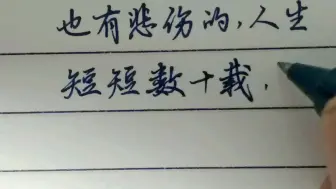 也有悲伤的,人生
短短数十载,